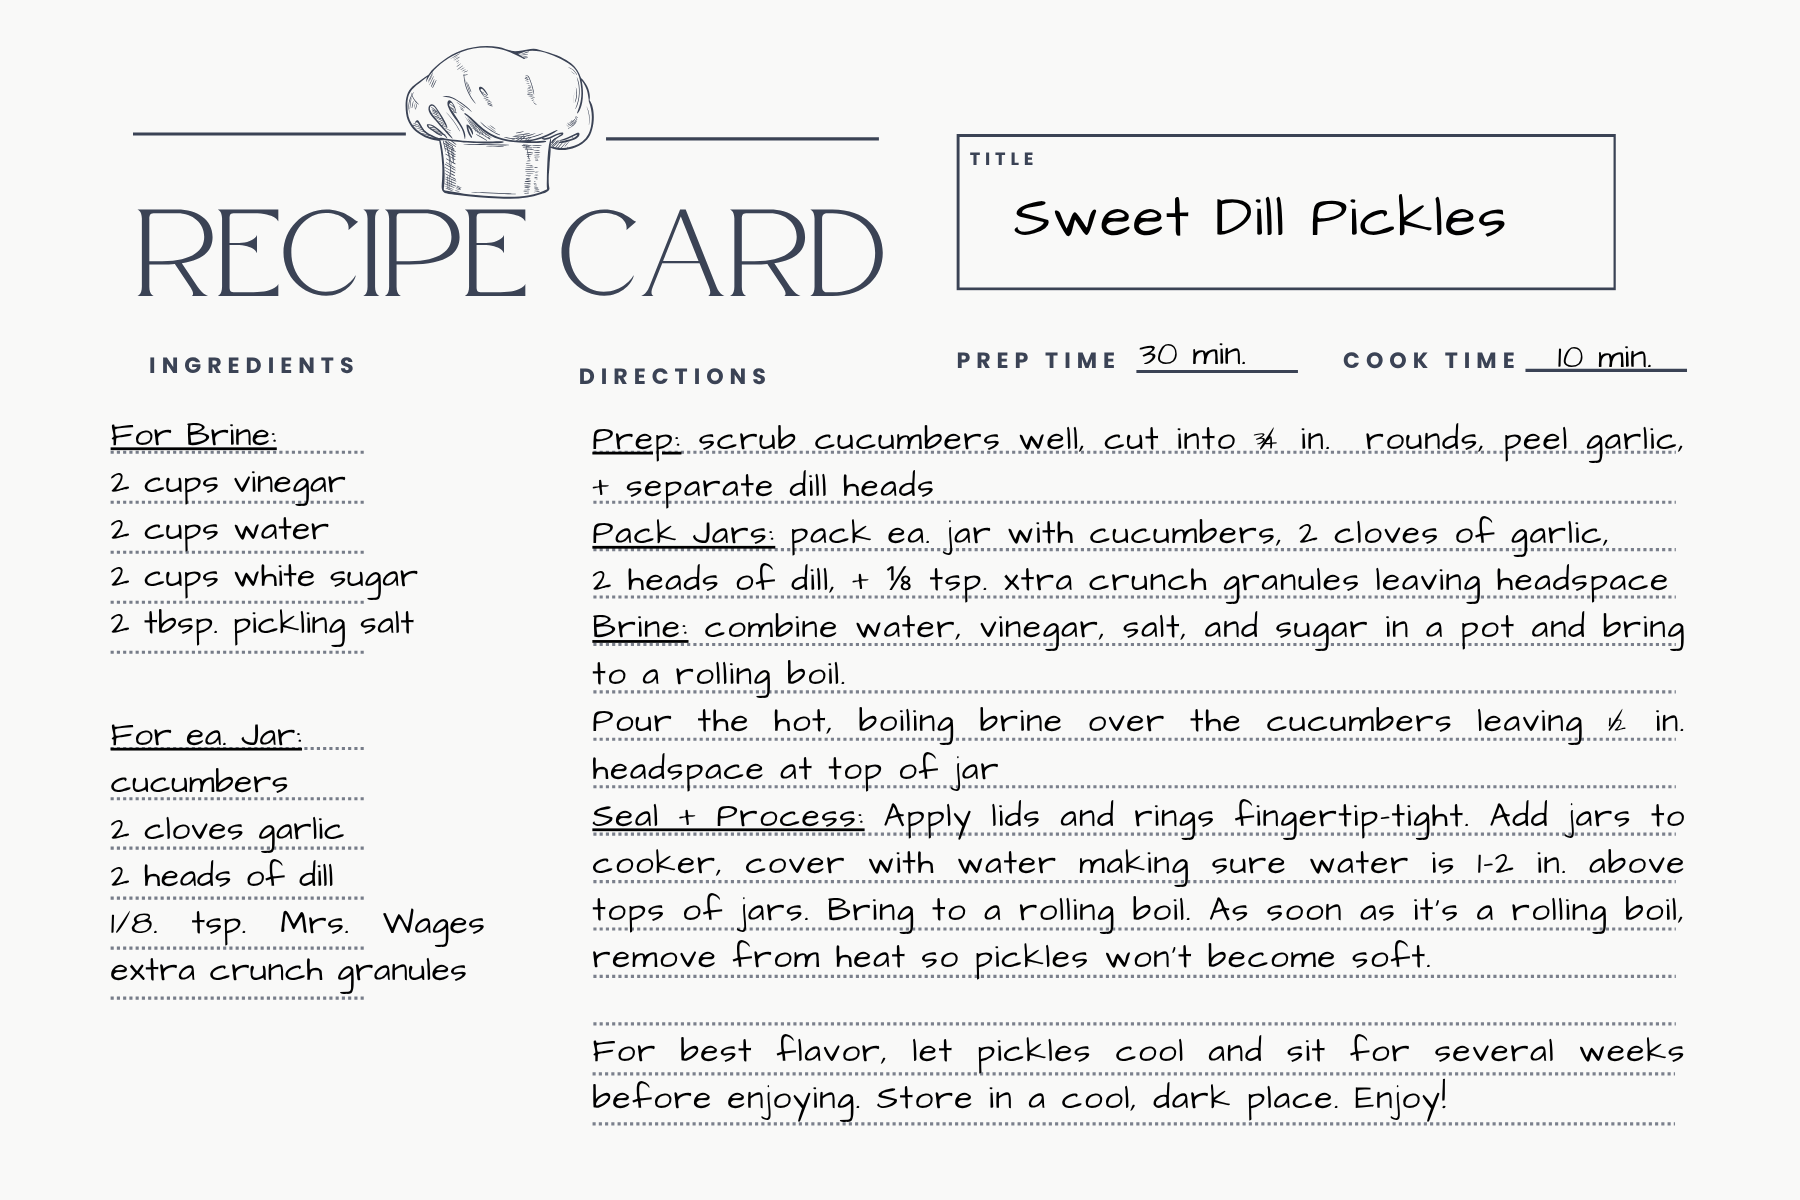 RECIPE CARD
TITLE
Sweet Dill Pickles
PREP TIME 30 min.
COOK TIME 10 min.
INGREDIENTS
For Brine:
2 cups vinegar
2 cups water
2 cups white sugar
2 tbsp. pickling salt
For ea. Jar:
cucumbers
2 cloves garlic
2 heads of dill
1/8. tsp. Mrs. Wages
extra crunch granules
DIRECTIONS
Prep: scrub cucumbers well, cut into ¾ in. rounds, peel garlic,
+ separate dill heads
Pack Jars: pack ea. jar with cucumbers, 2 cloves of garlic,
2 heads of dill, + ⅛ tsp. xtra crunch granules leaving headspace
Brine: combine water, vinegar, salt, and sugar in a pot and bring
to a rolling boil.
Pour the hot, boiling brine over the cucumbers leaving ½ in.
headspace at top of jar
Seal + Process: Apply lids and rings fingertip-tight. Add jars to
cooker, cover with water making sure water is 1-2 in. above
tops of jars. Bring to a rolling boil. As soon as it's a rolling boil,
remove from heat so pickles won't become soft.
For best flavor, let pickles cool and sit for several weeks
before enjoying. Store in a cool, dark place. Enjoy!